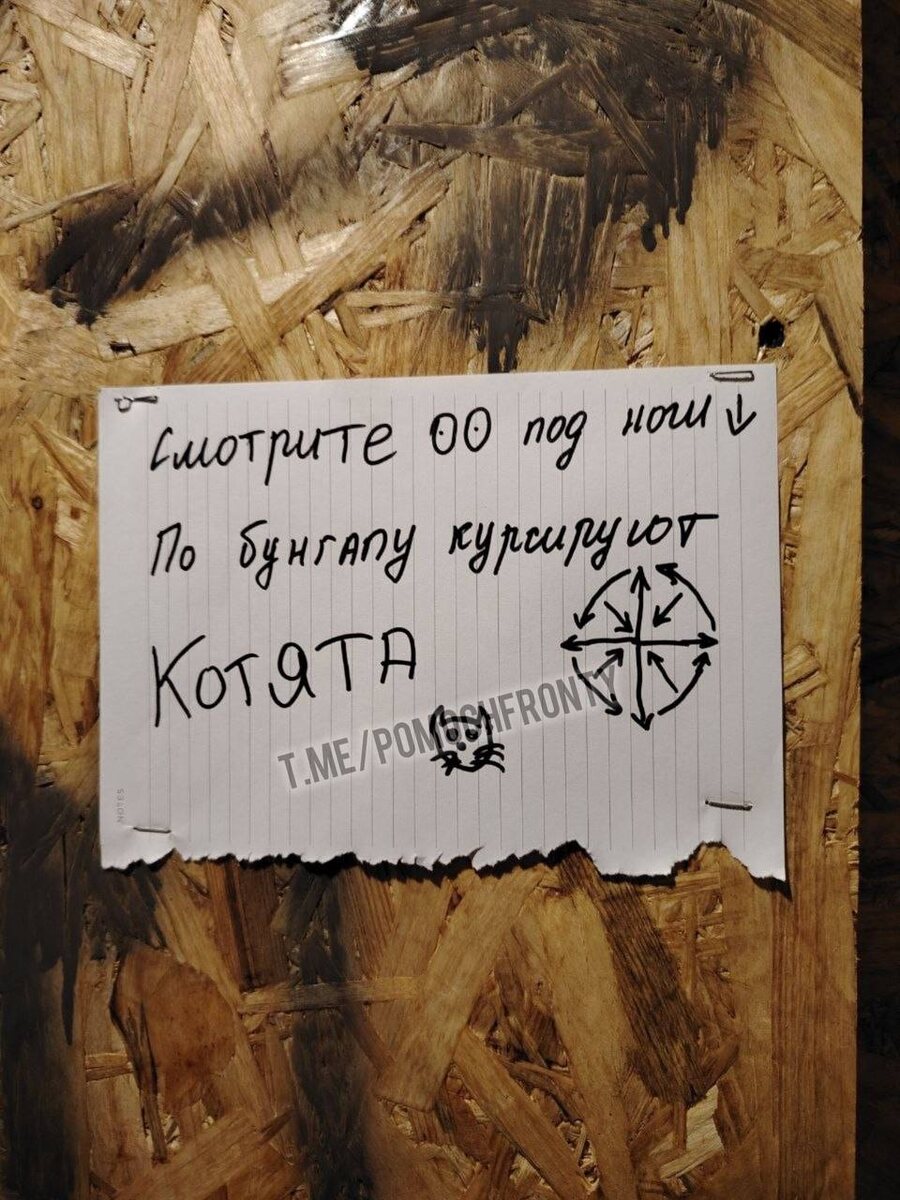 Смотрите 00 под ноги ↓
По бунгалу курсируют
КОТЯТА
T.ME/POMOSHFRONTY
NOTES